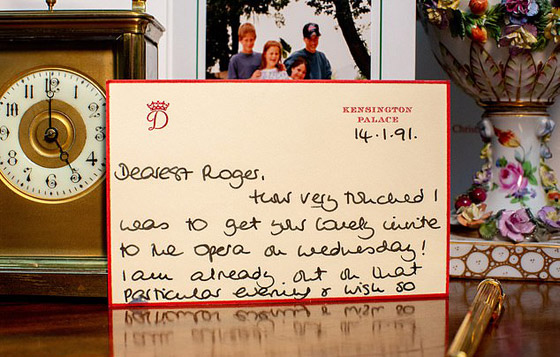 D
KENSINGTON
PALACE
14.1.91.
Dearest Roger,
How very touched I
was to get your lovely invite
to the opera on Wednesday!
I am already out on that
particular evening & wish so
11 12 1 2 3 4 5 6 7 8 9 10